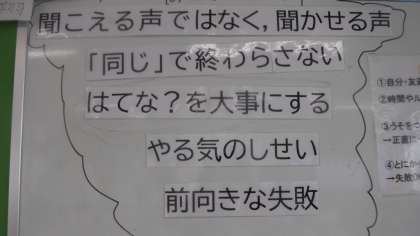 聞こえる声ではなく,聞かせる声
「同じ」で終わらさない
はてな？を大事にする
やる気のしせい
前向きな失敗
①自分・友
②時間やル
③うそをつ
→正直に
④とにか
→失敗O